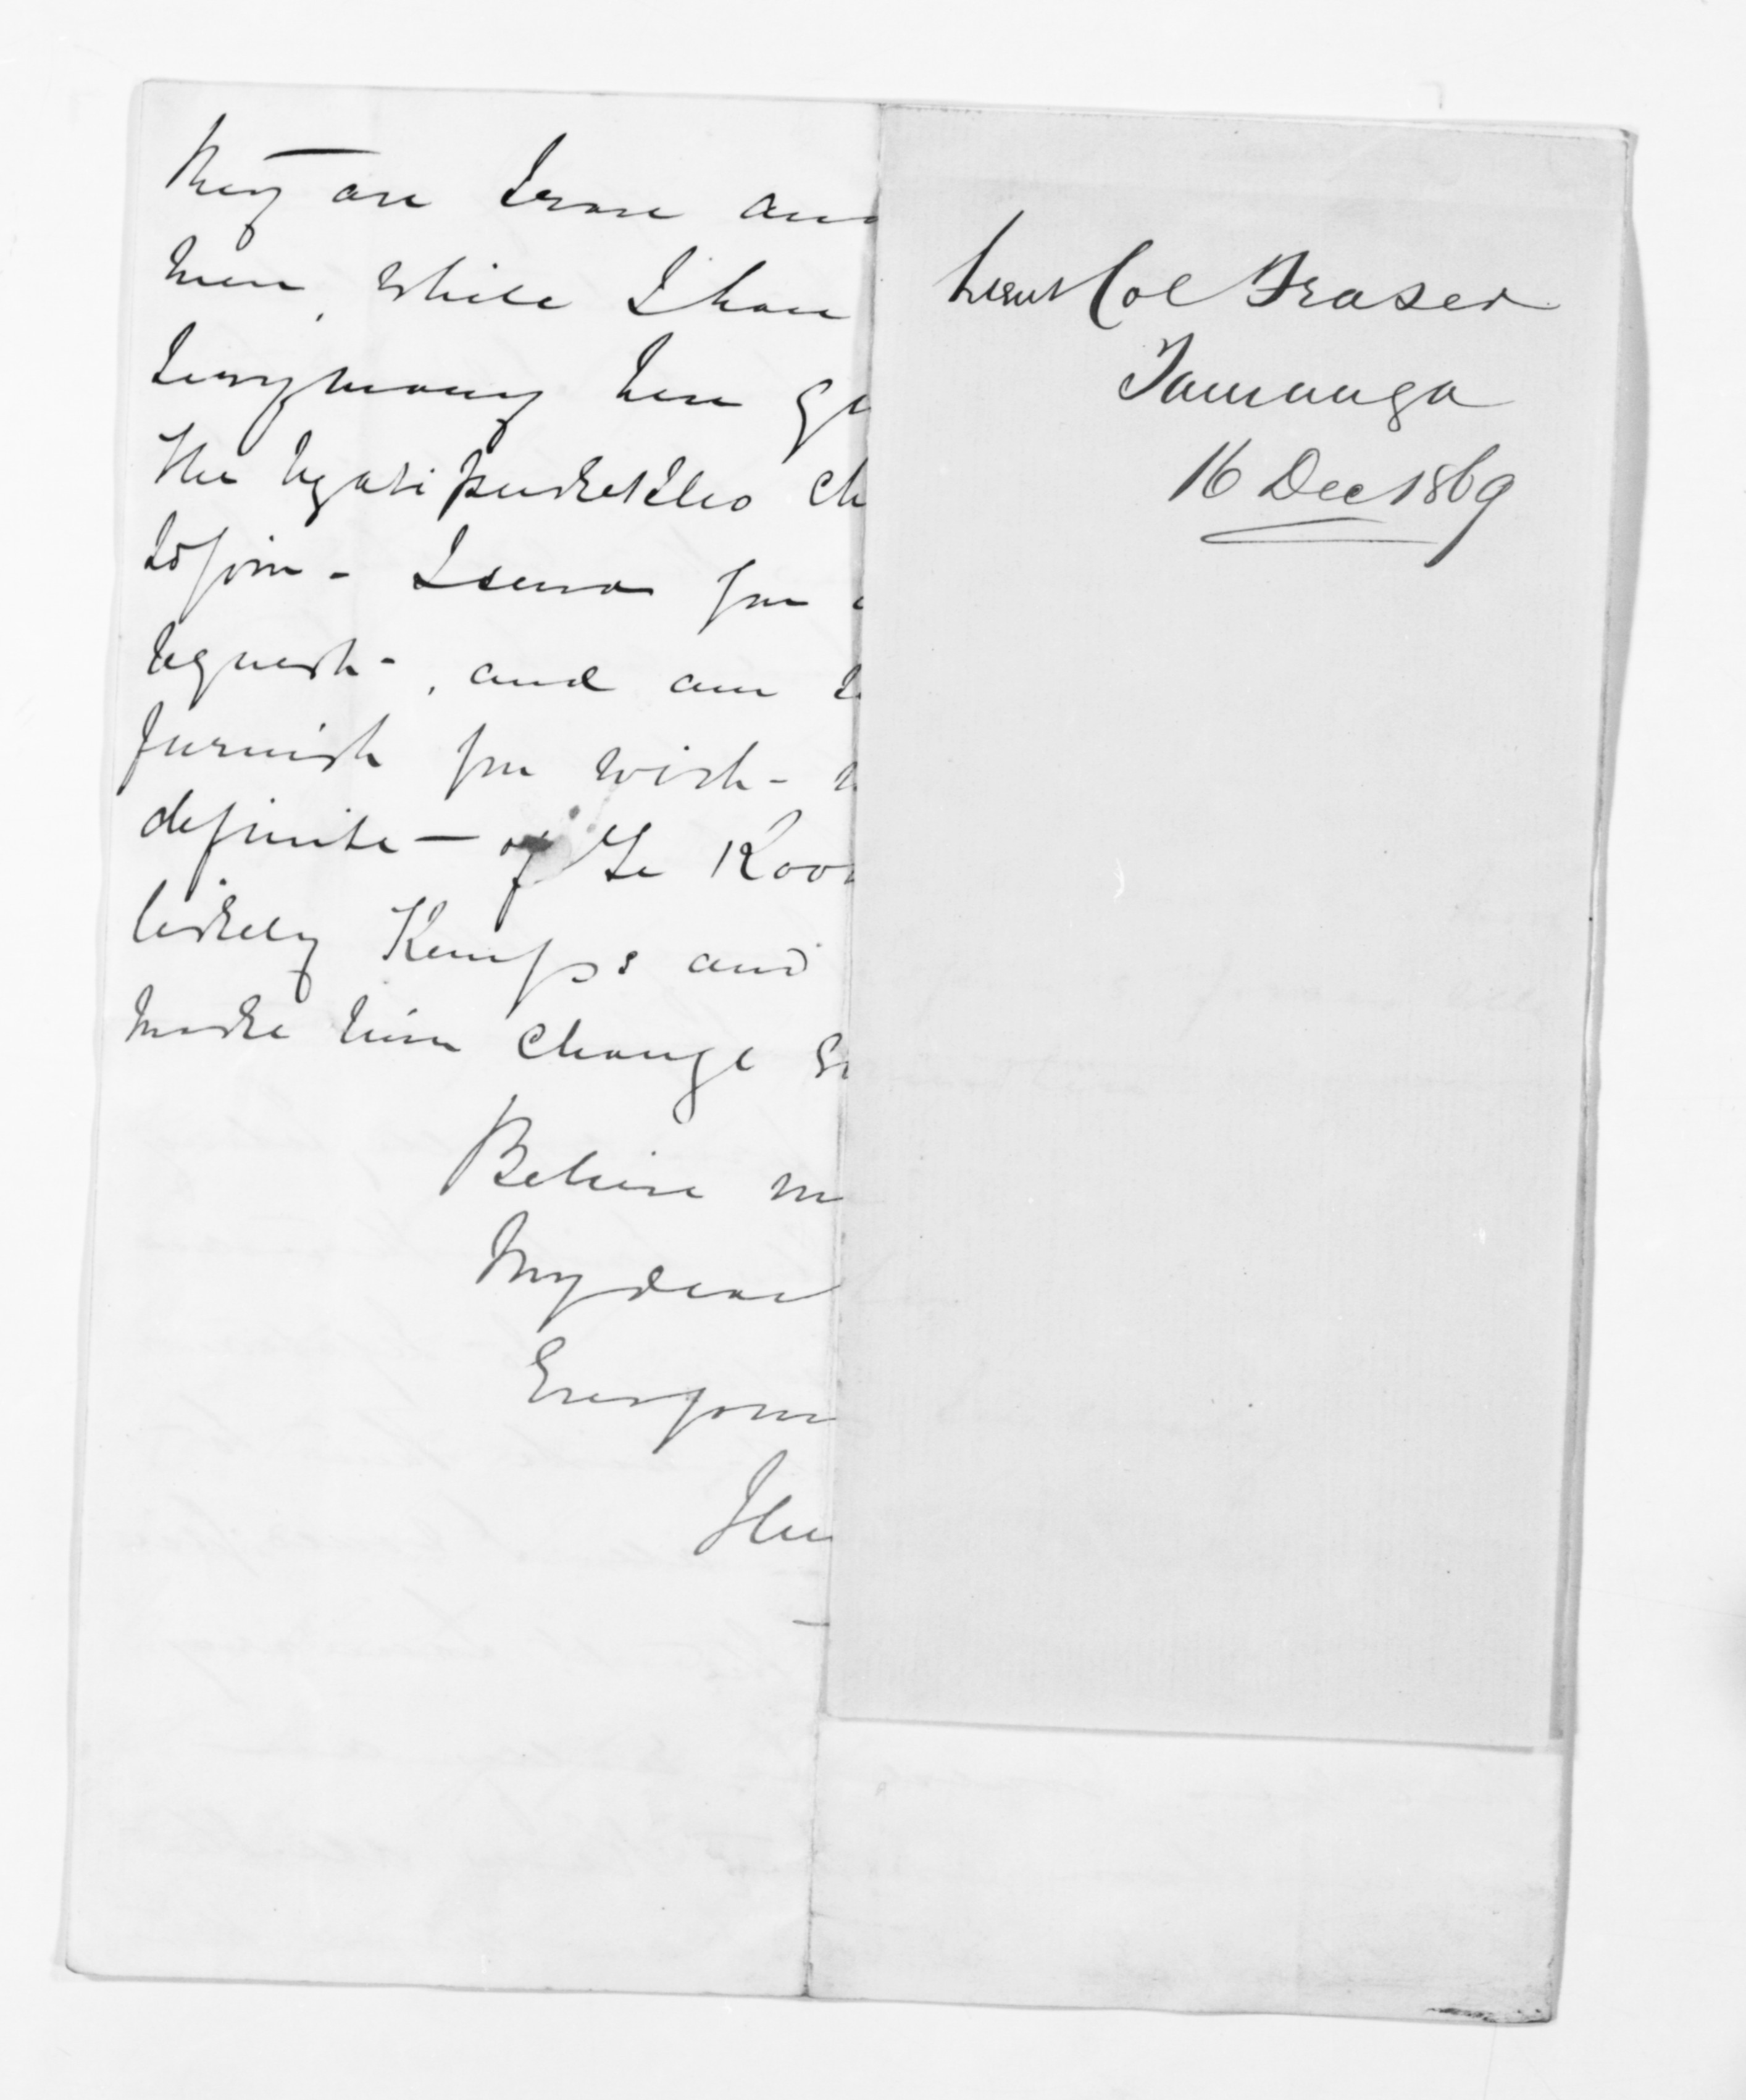 They are brave and
men, while I have
The Ngatipukekos ch
to join - I send you
request -, and am
furnish you with -
definite - of Te Koo
likely Kemps and
make him change
Believe m
My dear
Ever your
Lieut Col Fraser
Tauranga
16 Dec 1869